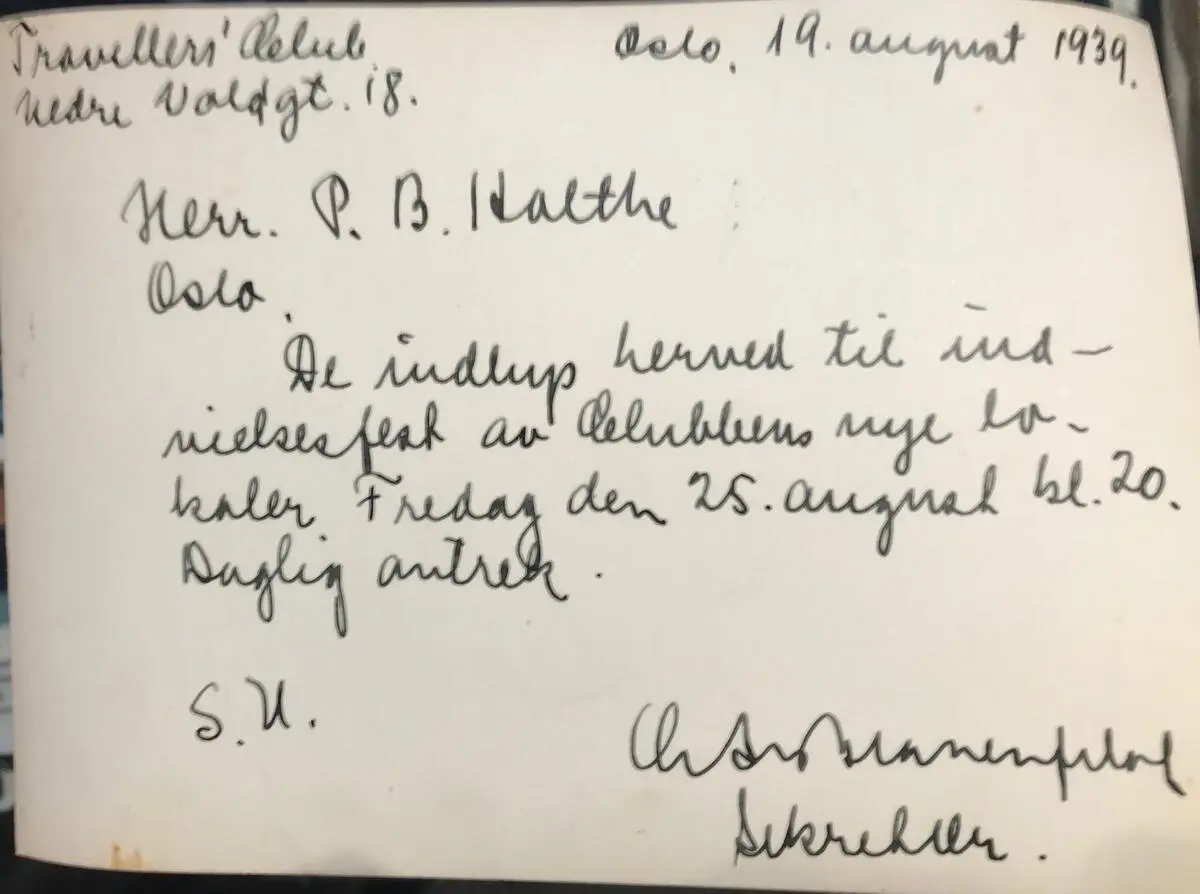 Travellers' Club.
Nedre Voldgt. 18.
Oslo, 19. august 1939.
Herr. P. B. Halthe
Oslo.
De indbys herved til ind-
vielsesfest av Clubbens nye lo-
kaler Fredag den 25. august kl. 20.
Daglig antrek.
S.U.
Sekretær.